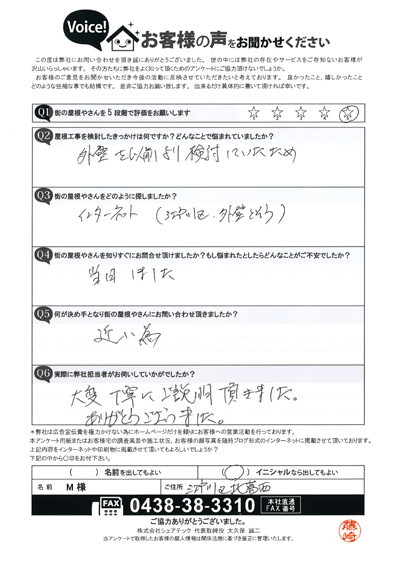 Voice!
お客様の声をお聞かせください
この度は弊社にお問い合わせを頂き誠にありがとうございました。世の中には弊社の存在やサービスをご存知ないお客様が
沢山いらっしゃいます。その方たちに弊社をよく知って頂くためのアンケートにご協力頂けないでしょうか。
お客様のご意見をお聞かせいただき今後の活動に反映させていただきたいと考えております。良かったこと、嬉しかったこと
どのような些細な事でも結構です。是非ご協力お願い致します。出来るだけ具体的に書いて頂ければ幸いです。
Q1 街の屋根やさんを5段階で評価をお願いします ☆ ☆ ☆ ☆ ☆
Q2 屋根工事を検討したきっかけは何ですか？どんなことで悩まれていましたか？
外壁を以前より検討していたため
Q3 街の屋根やさんをどのように探しましたか？
インターネット（江戸川区、外壁とそう）
Q4 街の屋根やさんを知りすぐにお問合せ頂けましたか？もし悩まれたとしたらどんなことがご不安でしたか？
当日しました
Q5 何が決め手となり街の屋根やさんにお問い合わせ頂きましたか？
近い為
Q6 実際に弊社担当者がお伺いしていかがでしたか？
大変丁寧にご説明頂きました。
ありがとうございました。
＊弊社は広告宣伝費を極力かけない為にホームページだけを頼りにお客様への営業活動を行っております。
本アンケート用紙またはお客様宅の調査風景や施工状況、お客様の顔写真を随時ブログ形式のインターネットに掲載させて頂いております。
上記内容をインターネットや印刷物に掲載させて頂いてもよろしいでしょうか？
下記の中から〇印をお付下さい。
（ ）名前を出してもよい （〇）イニシャルなら出してもよい
名前 M様 ご住所 江戸川区北葛西
FAX 0438-38-3310 本社直通 FAX番号
ご協力ありがとうございました。
株式会社シェアテック 代表取締役 大久保 誠二
当アンケートで取得したお客様の個人情報は関係法規に基づき厳正に管理いたします。